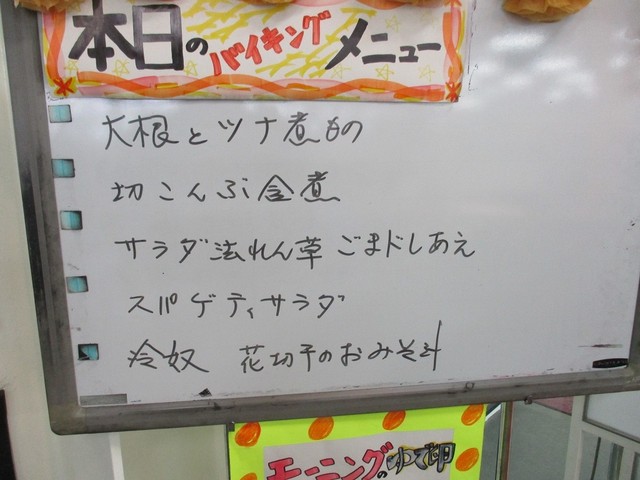 本日のバイキングメニュー
大根とツナ煮もの
切こんぶ金煮
サラダ法れん草 ごまドレあえ
スパゲティサラダ
冷奴 花切干のおみそ汁
モーニングのゆで卵